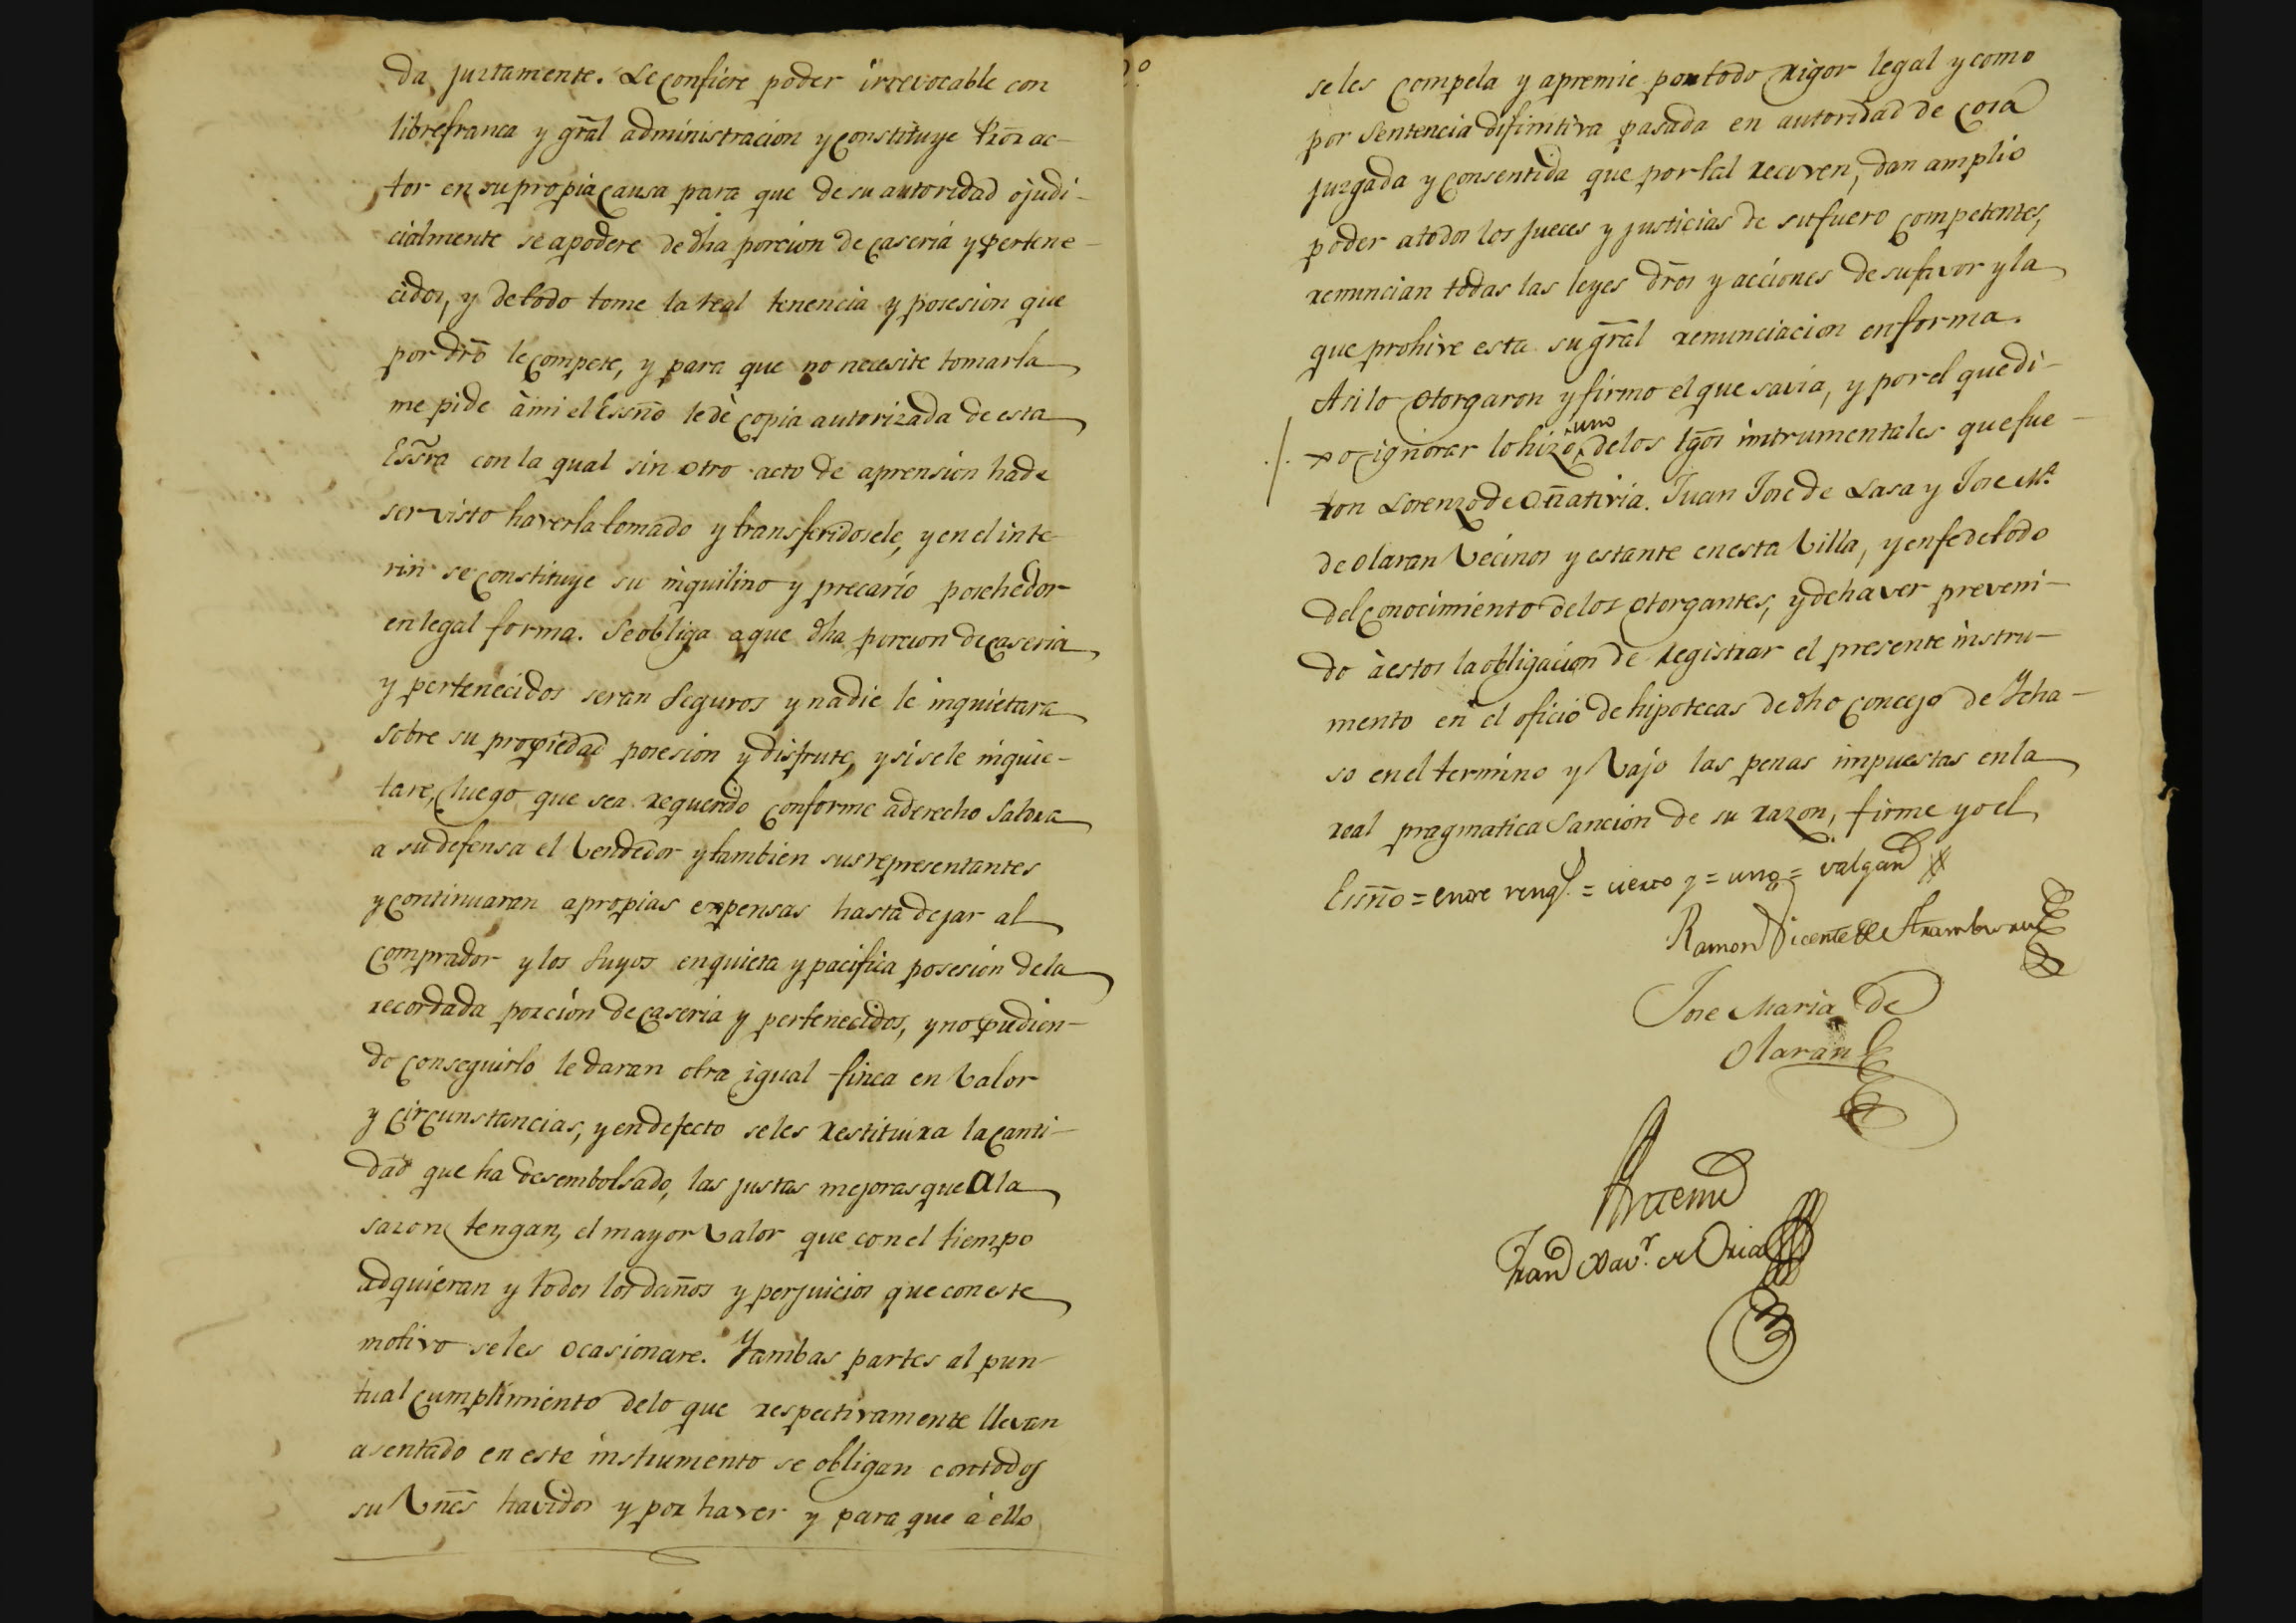 da juztamente. Le confiere poder irrevocable con
libre franca y gr̃al administracion y constituye Pror̃ ac-
tor en su propia causa para que de su autoridad o judi-
cialmente se apodere de dha porcion de caseria y pertene-
cidos, y de todo tome la real tenencia y posesion que
por dr̃o le compete, y para que no necesite tomarla
me pide à mi el Essño le dè copia autorizada de esta
Essr̃a con la qual sin otro acto de aprension ha de
ser visto haverla tomado y transferidosele, y en el inte-
rin se constituye su inquilino y precario poséhedor
en legal forma. Se obliga a que dha porcion de caseria
y pertenecidos seran Seguros y nadie le inquietara
sobre su propiedad posesion y disfrute, y si se le inquie-
tare, luego que sea requerido conforme a derecho saldra
a su defensa el Vendedor y tambien sus representantes
y continuaran a propias expensas hasta dejar al
comprador y los suyos en quieta y pacifica posesion de la
recordada porcion de caseria y pertenecidos, y no pudien-
do conseguirlo le daran otra igual finca en Valor
y circunstancias, y en defecto se les restituira la canti-
dad que ha desembolsado, las justas mejoras que a la
sazon tengan, el mayor Valor que con el tiempo
adquieran y todos los daños y perjuicios que con este
motivo se les ocasionare. Y ambas partes al pun-
tual cumplimiento de lo que respectivamente llevan
asentado en este instrumento se obligan con todos
su Vnẽs havidos y por haver y para que à ello
se les compela y apremie por todo rigor legal y como
por Sentencia difinitiva pasada en autoridad de cosa
juzgada y consentida que por tal reciven, dan amplio
poder a todos los Jueces y justicias de su fuero competentes,
renuncian todas las leyes dr̃os y acciones de su favor y la
que prohive esta su gr̃al renunciacion en forma.
Asi lo otorgaron y firmo el que savia, y por el que di-
xo ignorar lo hizo uno de los tgõs intrumentales que fue-
ron Lorenzo de Oñativia. Juan José de Lasa y Jose M.ª
de Olaran Vecinos y estante en esta Villa, y en fe de todo
del conocimiento de los otorgantes, y de haver preveni-
do à estos la obligacion de registrar el presente instru-
mento en el oficio de hipotecas de dho concejo de Ycha-
so en el termino y Vajo las penas impuestas en la
real pragmatica Sancion de su razon, firme yo el
Essño = entre rengs. = = uno = valgan
Ramon Vicente de Aramburu
Jose Maria de
Olaran
Antemi
Fran.co Xav.r de Oria